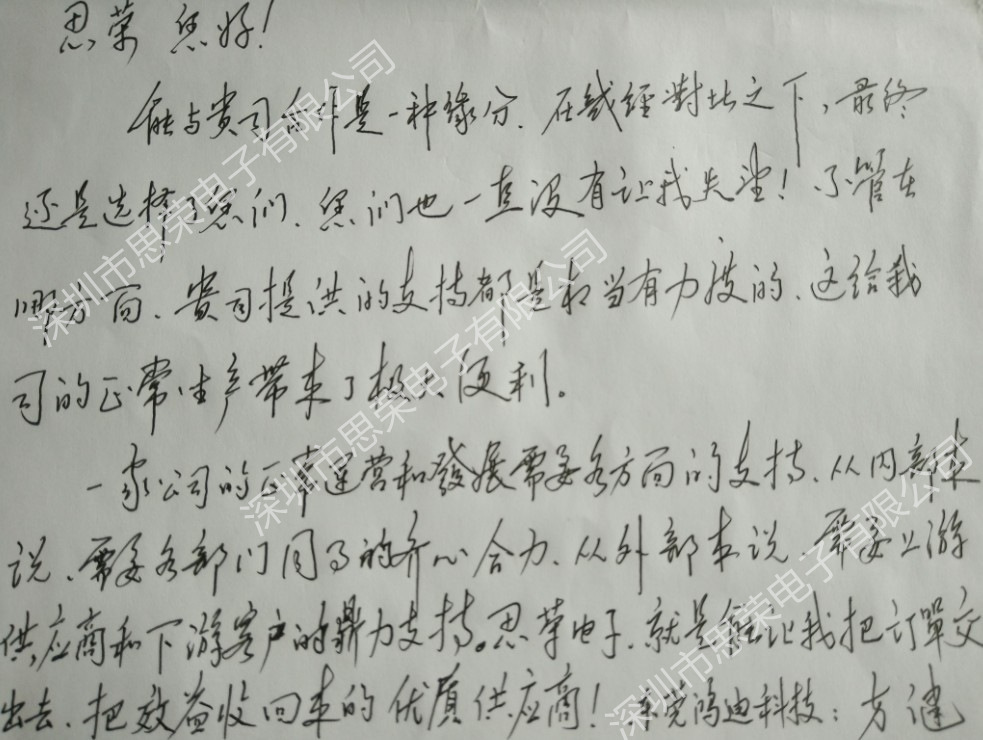 思荣 您好！
能与贵司合作是一种缘分、在几经對比之下，最终
还是选择了您们、您们也一直没有让我失望！不管在
哪方面、贵司提供的支持都是相当有力度的、这给我
司的正常生产带来了极大便利。
一家公司的正常运营和發展需要各方面的支持、从内部来
说、需要各部门同事的齐心合力、从外部来说、需要上游
供应商和下游客户的鼎力支持。思荣电子、就是能让我把订單交
出去、把效益收回来的优质供应商！东莞鸿迪科技：方健
深圳市思荣电子有限公司
深圳市思荣电子有限公司
深圳市思荣电子有限公司